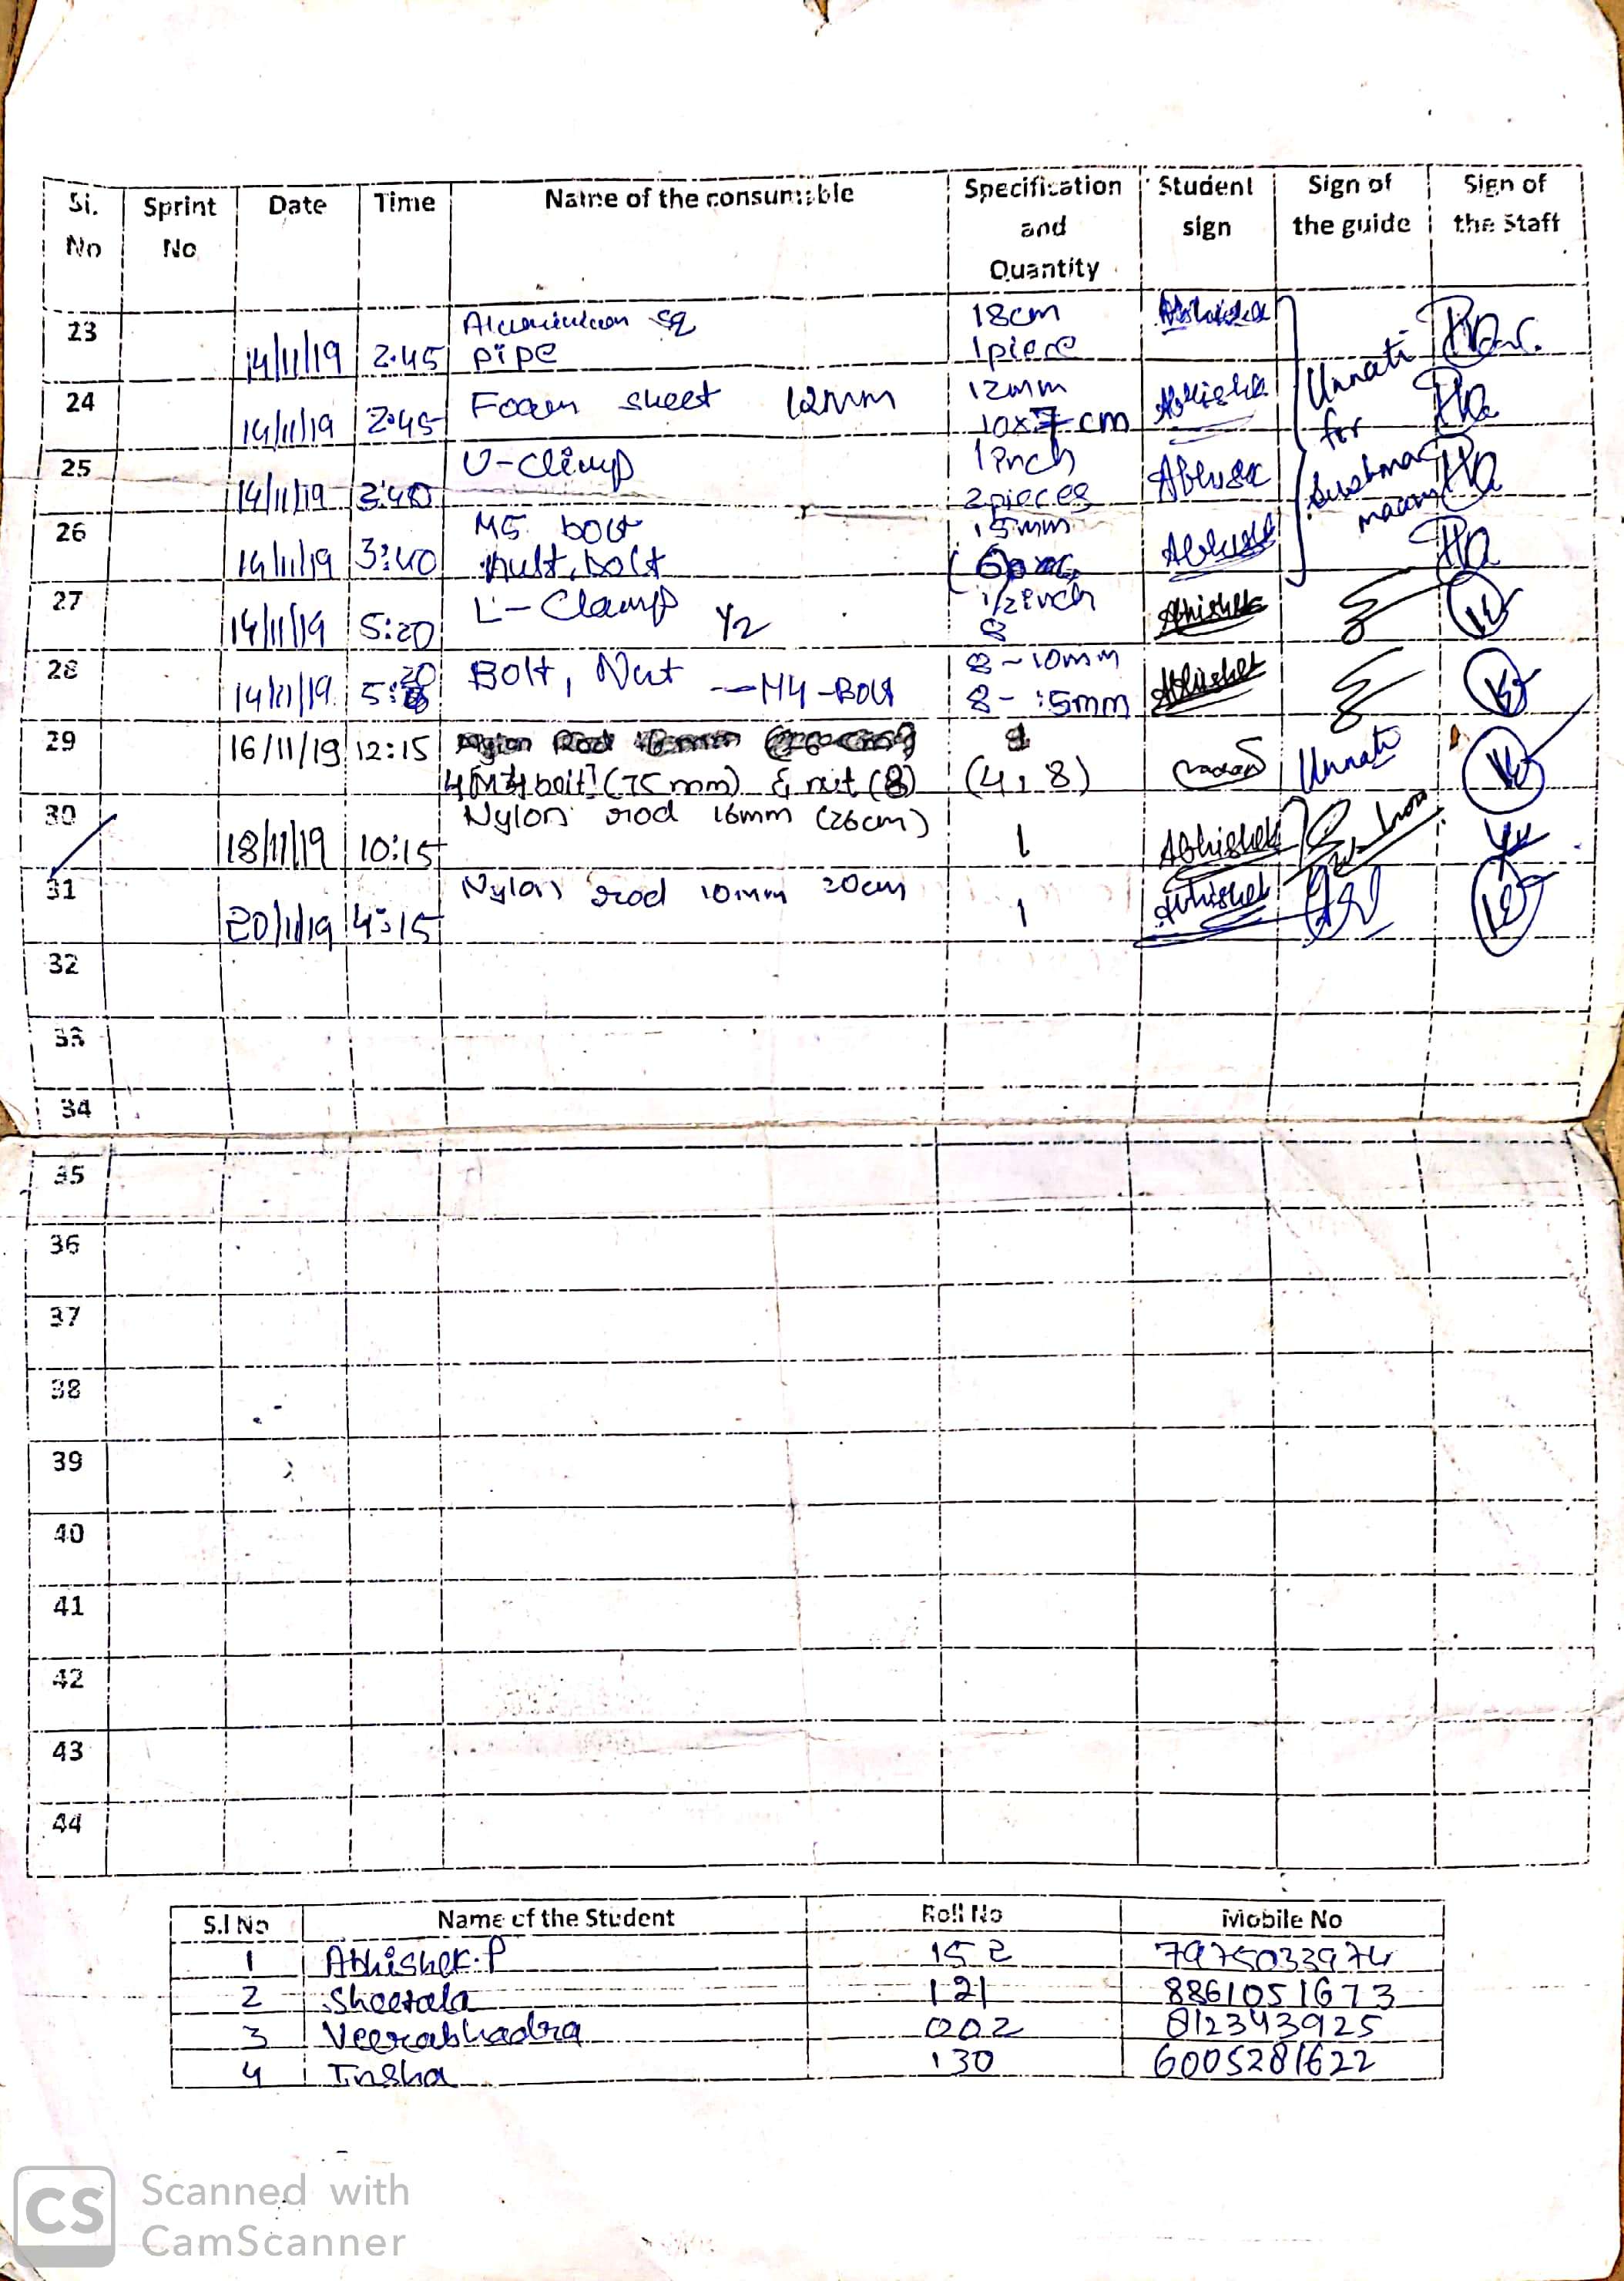 Sl. No Sprint No Date Time Name of the consumable Specification and Quantity Student sign Sign of the guide Sign of the Staff
23 14/11/19 2.45 Aluminium sq pipe 18cm 1piece Abhishek Unnati for Sushma maam
24 14/11/19 2.45 Foam sheet 12mm 12mm 10x7cm Abhishek
25 14/11/19 3:40 U-clamp 1inch 2pieces Abhishek
26 14/11/19 3:40 M5 bolt nutt, bolt 15mm
27 14/11/19 5:20 L-Clamp 1/2 1/2inch 8 Abhishek
28 14/11/19 5:20 Bolt, Nut - M4-Bolt 8-10mm 8-15mm Abhishek
29 16/11/19 12:15 (75 mm) & nut (8) (4,8) Unnati
30 18/11/19 10:15 Nylon rod 16mm (26cm) 1 Abhishek
31 20/11/19 4:15 Nylon rod 10mm 20cm 1 Abhishek
32
33
34
35
36
37
38
39
40
41
42
43
44
S.l No Name of the Student Roll No Mobile No
1 Abhishek.P 152 7975033974
2 Sheetala 121 8861051673
3 Veerabhadra 002 812343925
4 Insha 130 6005281622
CS Scanned with
CamScanner